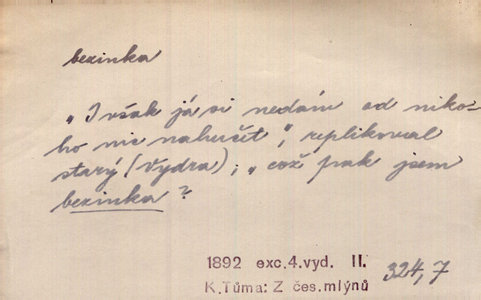 bezinka
„I však já si nedám od niko-
ho nic nahučet“, replikoval
starý (Vydra); „což pak jsem
bezinka?
1892 exc.4.vyd. II. 324,7
K.Tůma: Z čes.mlýnů